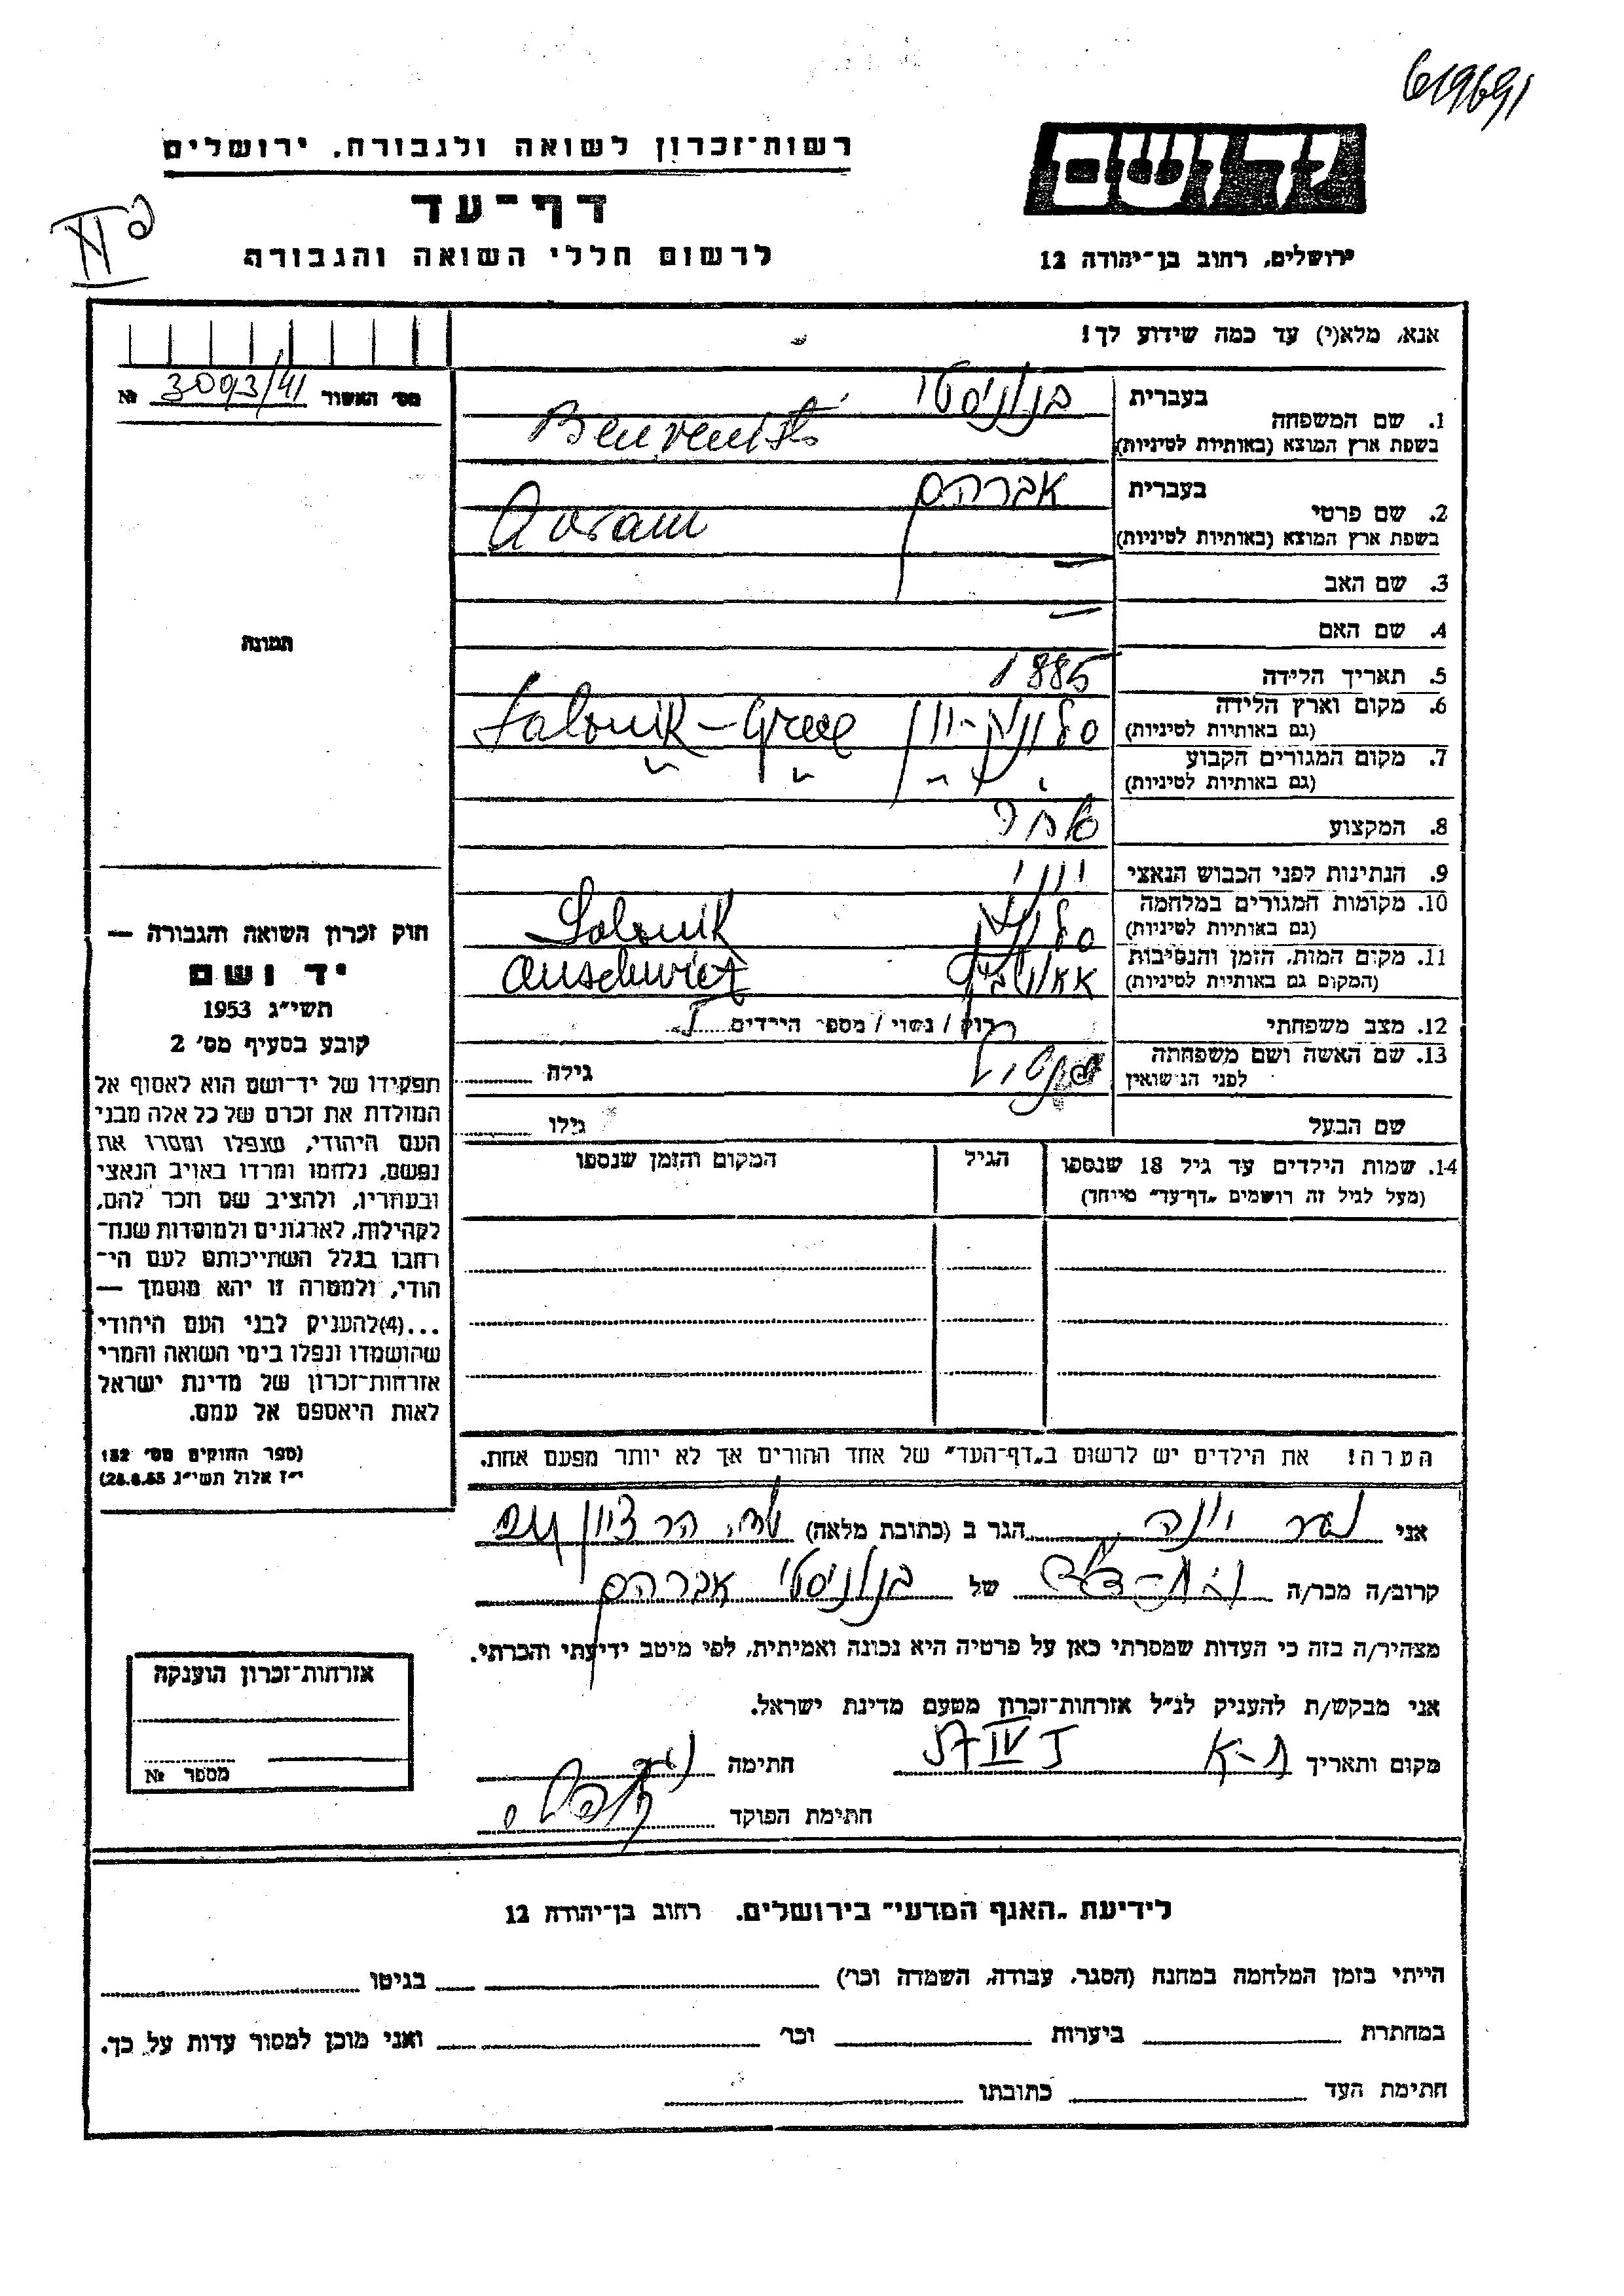 619691
יד ושם
רשות־זכרון לשואה ולגבורה, ירושלים
דף־עד
לרשום חללי השואה והגבורה
ירושלים, רחוב בן־יהודה 12
אנא, מלא(י) עד כמה שידוע לך!
מס׳ האשור 3093/41 №
בעברית בנוניסטי
1. שם המשפחה
בשפת ארץ המוצא (באותיות לטיניות) Benveniste
בעברית אברהם
2. שם פרטי
בשפת ארץ המוצא (באותיות לטיניות) Avram
3. שם האב —
4. שם האם —
תמונה
5. תאריך הלידה 1885
6. מקום וארץ הלידה
(גם באותיות לטיניות) סלוניק-יון Salonik - Greece
7. מקום המגורים הקבוע
(גם באותיות לטיניות)
8. המקצוע סוחר
9. הנתינות לפני הכבוש הנאצי יוני
10. מקומות המגורים במלחמה
(גם באותיות לטיניות) סלוניק Salonik
11. מקום המות, הזמן והנסיבות
(המקום גם באותיות לטיניות) אאושביץ Auschwietz
12. מצב משפחתי רווק / נשוי / מספר הילדים
13. שם האשה ושם משפחתה
לפני הנישואין
גילה
שם הבעל גילו
14. שמות הילדים עד גיל 18 שנספו הגיל המקום והזמן שנספו
(מעל לגיל זה רושמים „דף־עד״ מיוחד)
חוק זכרון השואה והגבורה —
יד ושם
תשי״ג 1953
קובע בסעיף מס׳ 2
תפקידו של יד־ושם הוא לאסוף אל
המולדת את זכרם של כל אלה מבני
העם היהודי, שנפלו ומסרו את
נפשם, נלחמו ומרדו באויב הנאצי
ובעוזריו, ולהציב שם וזכר להם,
לקהילות, לארגונים ולמוסדות שנח־
רבו בגלל השתייכותם לעם הי־
הודי, ולמטרה זו יהא מוסמך —
...(4)להעניק לבני העם היהודי
שהושמדו ונפלו בימי השואה והמרי
אזרחות־זכרון של מדינת ישראל
לאות היאספם אל עמם.
(ספר החוקים מס׳ 132
י״ז אלול תשי״ג 28.8.53)
הערה! את הילדים יש לרשום ב„דף־העד״ של אחד ההורים אך לא יותר מפעם אחת.
אני יונה הגר ב (כתובת מלאה) הר ציון
קרוב/ה מכר/ה של בנוניסטי אברהם
מצהיר/ה בזה כי העדות שמסרתי כאן על פרטיה היא נכונה ואמיתית, לפי מיטב ידיעתי והכרתי.
אני מבקש/ת להעניק לנ״ל אזרחות־זכרון מטעם מדינת ישראל.
מקום ותאריך ת-א IV 57 חתימה
חתימת הפוקד
אזרחות־זכרון הוענקה
מספר №
לידיעת „האגף המדעי״ בירושלים, רחוב בן־יהודה 12
הייתי בזמן המלחמה במחנה (הסגר, עבודה, השמדה וכו׳) בגיטו
במחתרת ביערות וכו׳ ואני מוכן למסור עדות על כך.
חתימת העד כתובתו